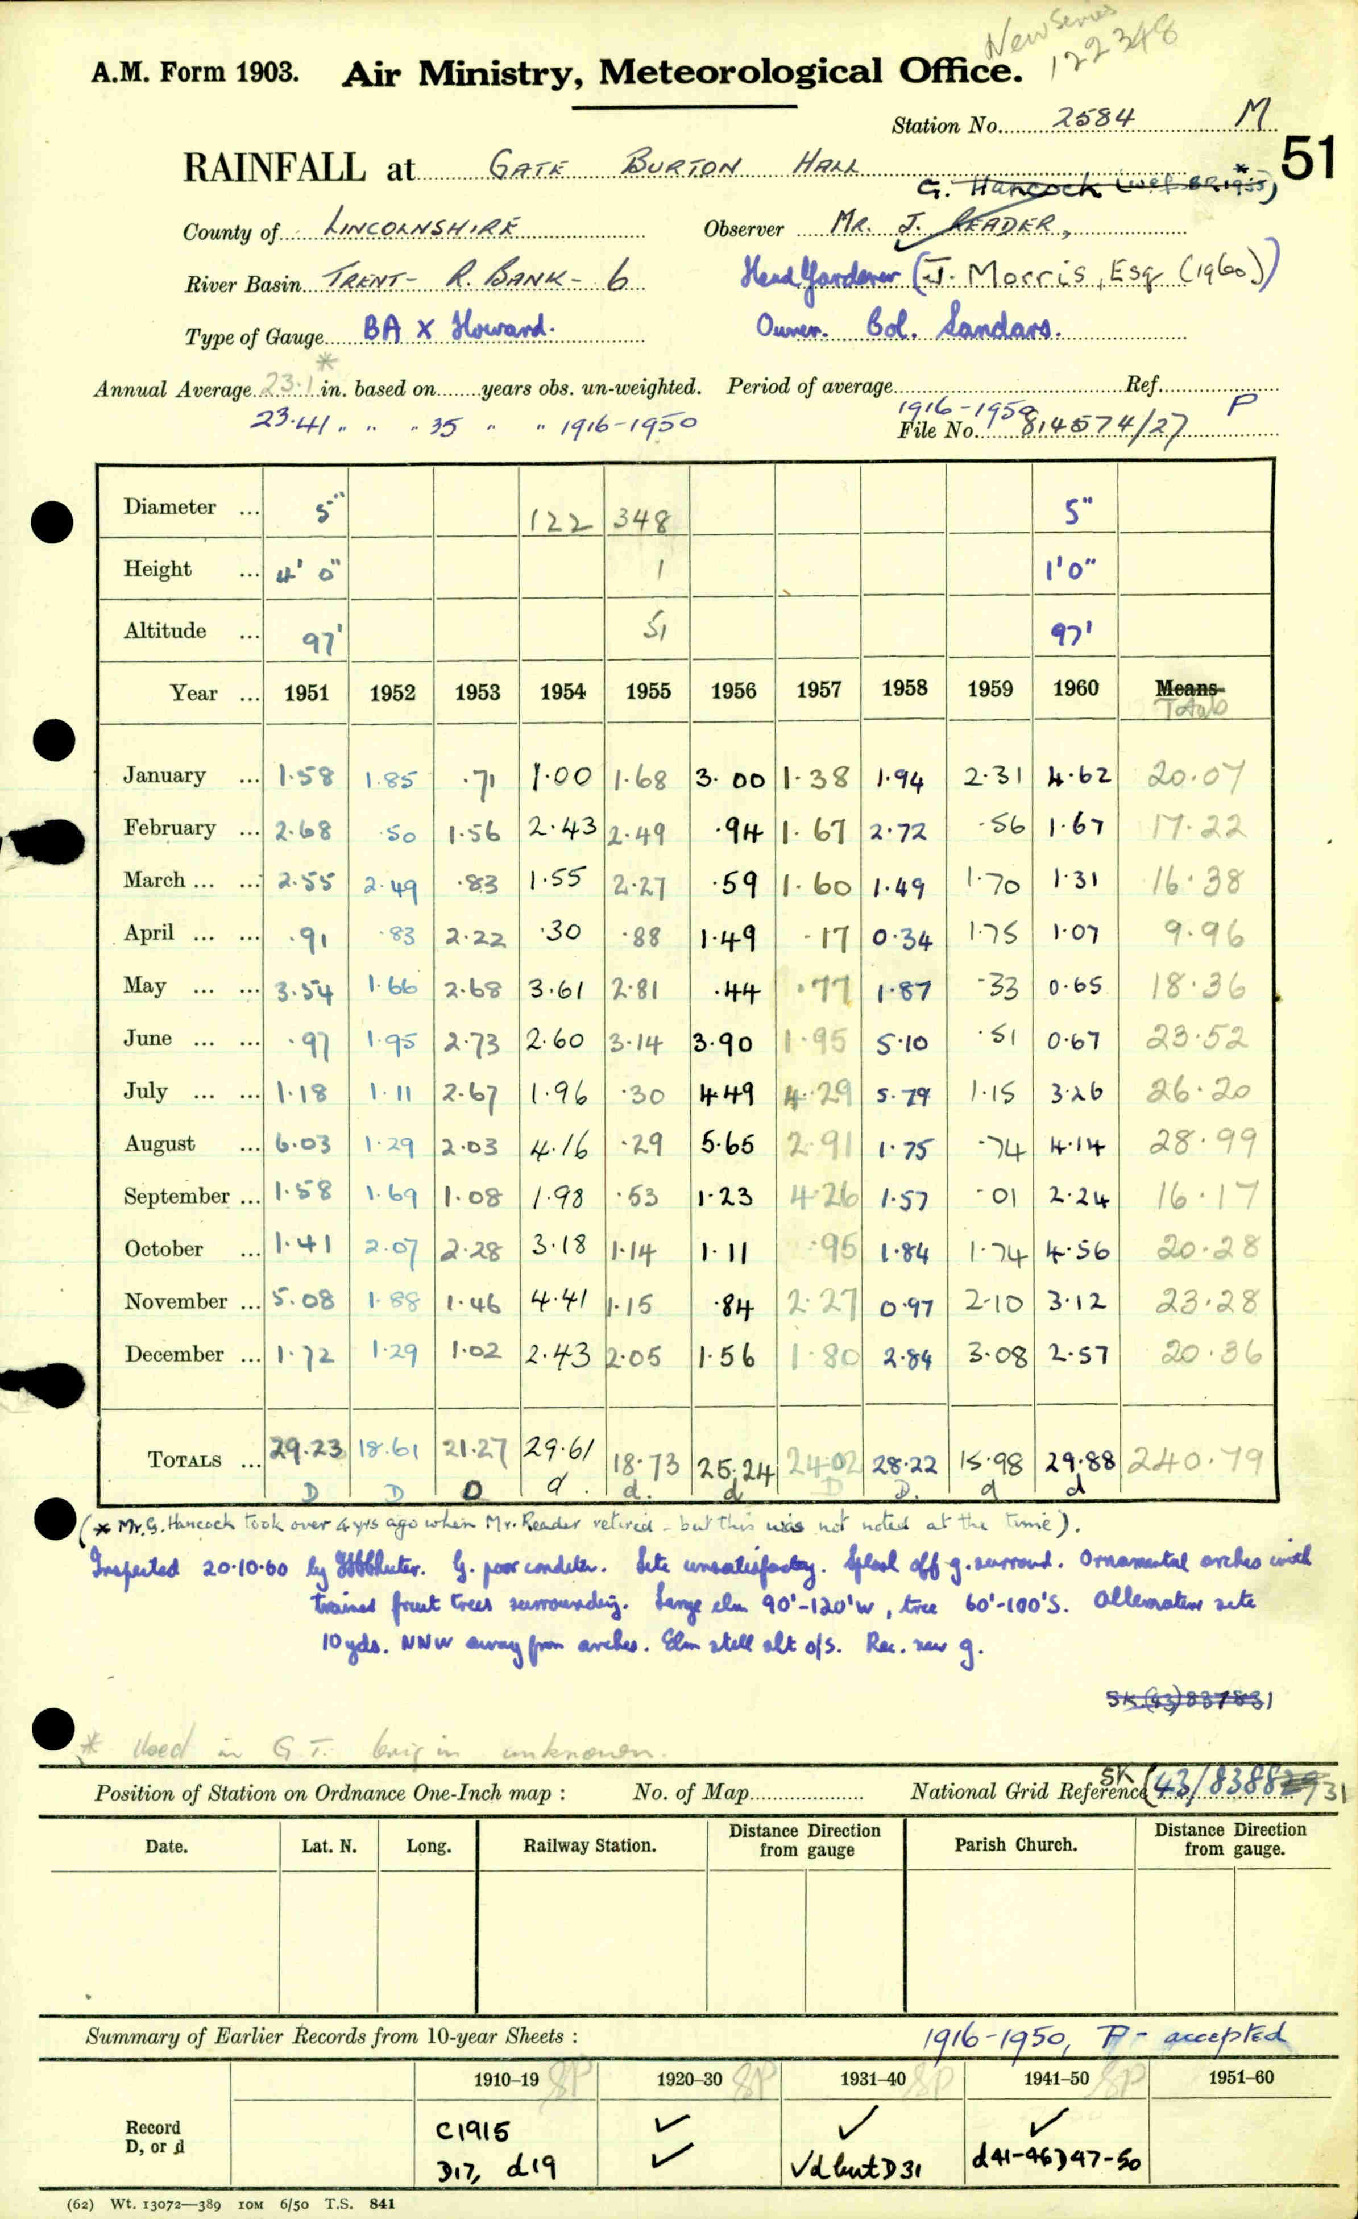 New Series
122348
A.M. Form 1903. Air Ministry, Meteorological Office.
Station No. 2584 M
51
RAINFALL at GATE BURTON HALL
G. Hancock (wef *)
County of LINCOLNSHIRE Observer MR. J. READER,
River Basin TRENT - R. BANK - 6 Head Gardener (J. Morris, Esq (1960))
Type of Gauge BA X Howard. Owner. Col. Sandars.
Annual Average 23.1* in. based on years obs. un-weighted. Period of average Ref.
23.41 " " " 35 " " 1916-1950 1916-1950 P
File No. 814574/27
Diameter ... 5" 122 348 5"
Height ... 4' 0" 1 1'0"
Altitude ... 97' 51 97'
Year ... 1951 1952 1953 1954 1955 1956 1957 1958 1959 1960 Means Totals
January ... 1.58 1.85 .71 1.00 1.68 3.00 1.38 1.94 2.31 4.62 20.07
February ... 2.68 .50 1.56 2.43 2.49 .94 1.67 2.72 .56 1.67 17.22
March ... ... 2.55 2.49 .83 1.55 2.27 .59 1.60 1.49 1.70 1.31 16.38
April ... ... .91 .83 2.22 .30 .88 1.49 .17 0.34 1.75 1.07 9.96
May ... ... 3.54 1.66 2.68 3.61 2.81 .44 .77 1.87 .33 0.65 18.36
June ... ... .97 1.95 2.73 2.60 3.14 3.90 1.95 5.10 .51 0.67 23.52
July ... ... 1.18 1.11 2.67 1.96 .30 4.49 4.29 5.79 1.15 3.26 26.20
August ... 6.03 1.29 2.03 4.16 .29 5.65 2.91 1.75 .74 4.14 28.99
September ... 1.58 1.69 1.08 1.98 .53 1.23 4.26 1.57 .01 2.24 16.17
October ... 1.41 2.07 2.28 3.18 1.14 1.11 .95 1.84 1.74 4.56 20.28
November ... 5.08 1.88 1.46 4.41 1.15 .84 2.27 0.97 2.10 3.12 23.28
December ... 1.72 1.29 1.02 2.43 2.05 1.56 1.80 2.84 3.08 2.57 20.36
TOTALS ... 29.23 18.61 21.27 29.61 18.73 25.24 24.02 28.22 15.98 29.88 240.79
D D D d. d. d D D. d d
(* Mr. G. Hancock took over 4 yrs ago when Mr. Reader retired - but this was not noted at the time).
Inspected 20.10.60 by G. poor condition. Site unsatisfactory. Splash off g. surround. Ornamental arches with
trained fruit trees surrounding. Large elm 90'-120' W, tree 60'-100' S. Alternative site
10 yds. NNW away from arches. Elm still alt o/s. Rec. new g.
SK(43)837831
* Used in G.T. origin unknown.
Position of Station on Ordnance One-Inch map : No. of Map National Grid Reference SK (43/838831
Date. Lat. N. Long. Railway Station. Distance Direction from gauge Parish Church. Distance Direction from gauge.
Summary of Earlier Records from 10-year Sheets : 1916-1950, P - accepted
1910–19 SP 1920–30 SP 1931–40 SP 1941–50 SP 1951–60
Record C1915 ✓ ✓ ✓
D, or d D17, d19 ✓ √d but D31 d41-46 D47-50
(62) Wt. 13072—389 10M 6/50 T.S. 841